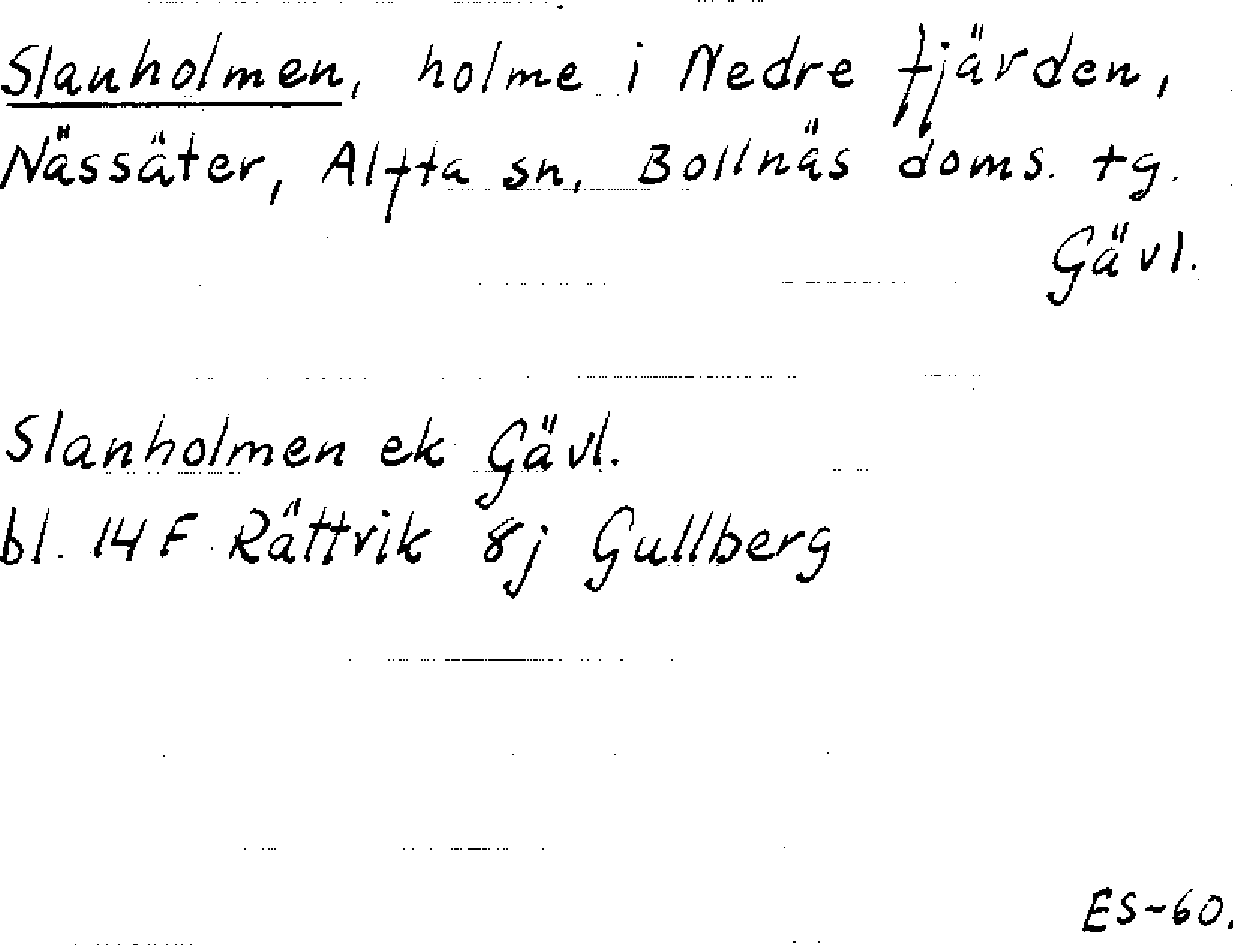 Slanholmen, holme i Nedre fjärden,
Nässäter, Alfta sn, Bollnäs doms. tg.
Gävl.
Slanholmen ek Gävl.
bl. 14 F Rättvik 8j Gullberg
ES-60.